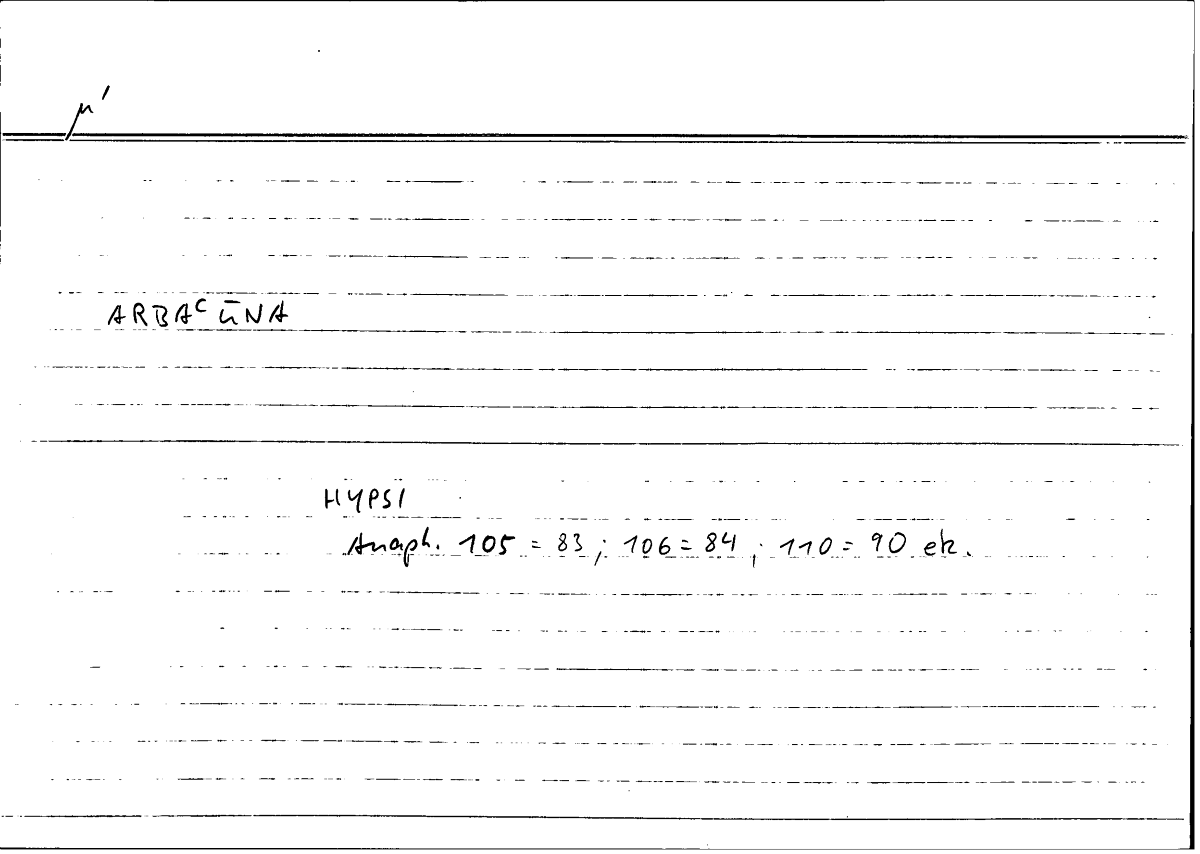 μ'
ARBAʿŪNA
HYPSI
Anaph. 105 = 83 ; 106 = 84 ; 110 = 90 etc.